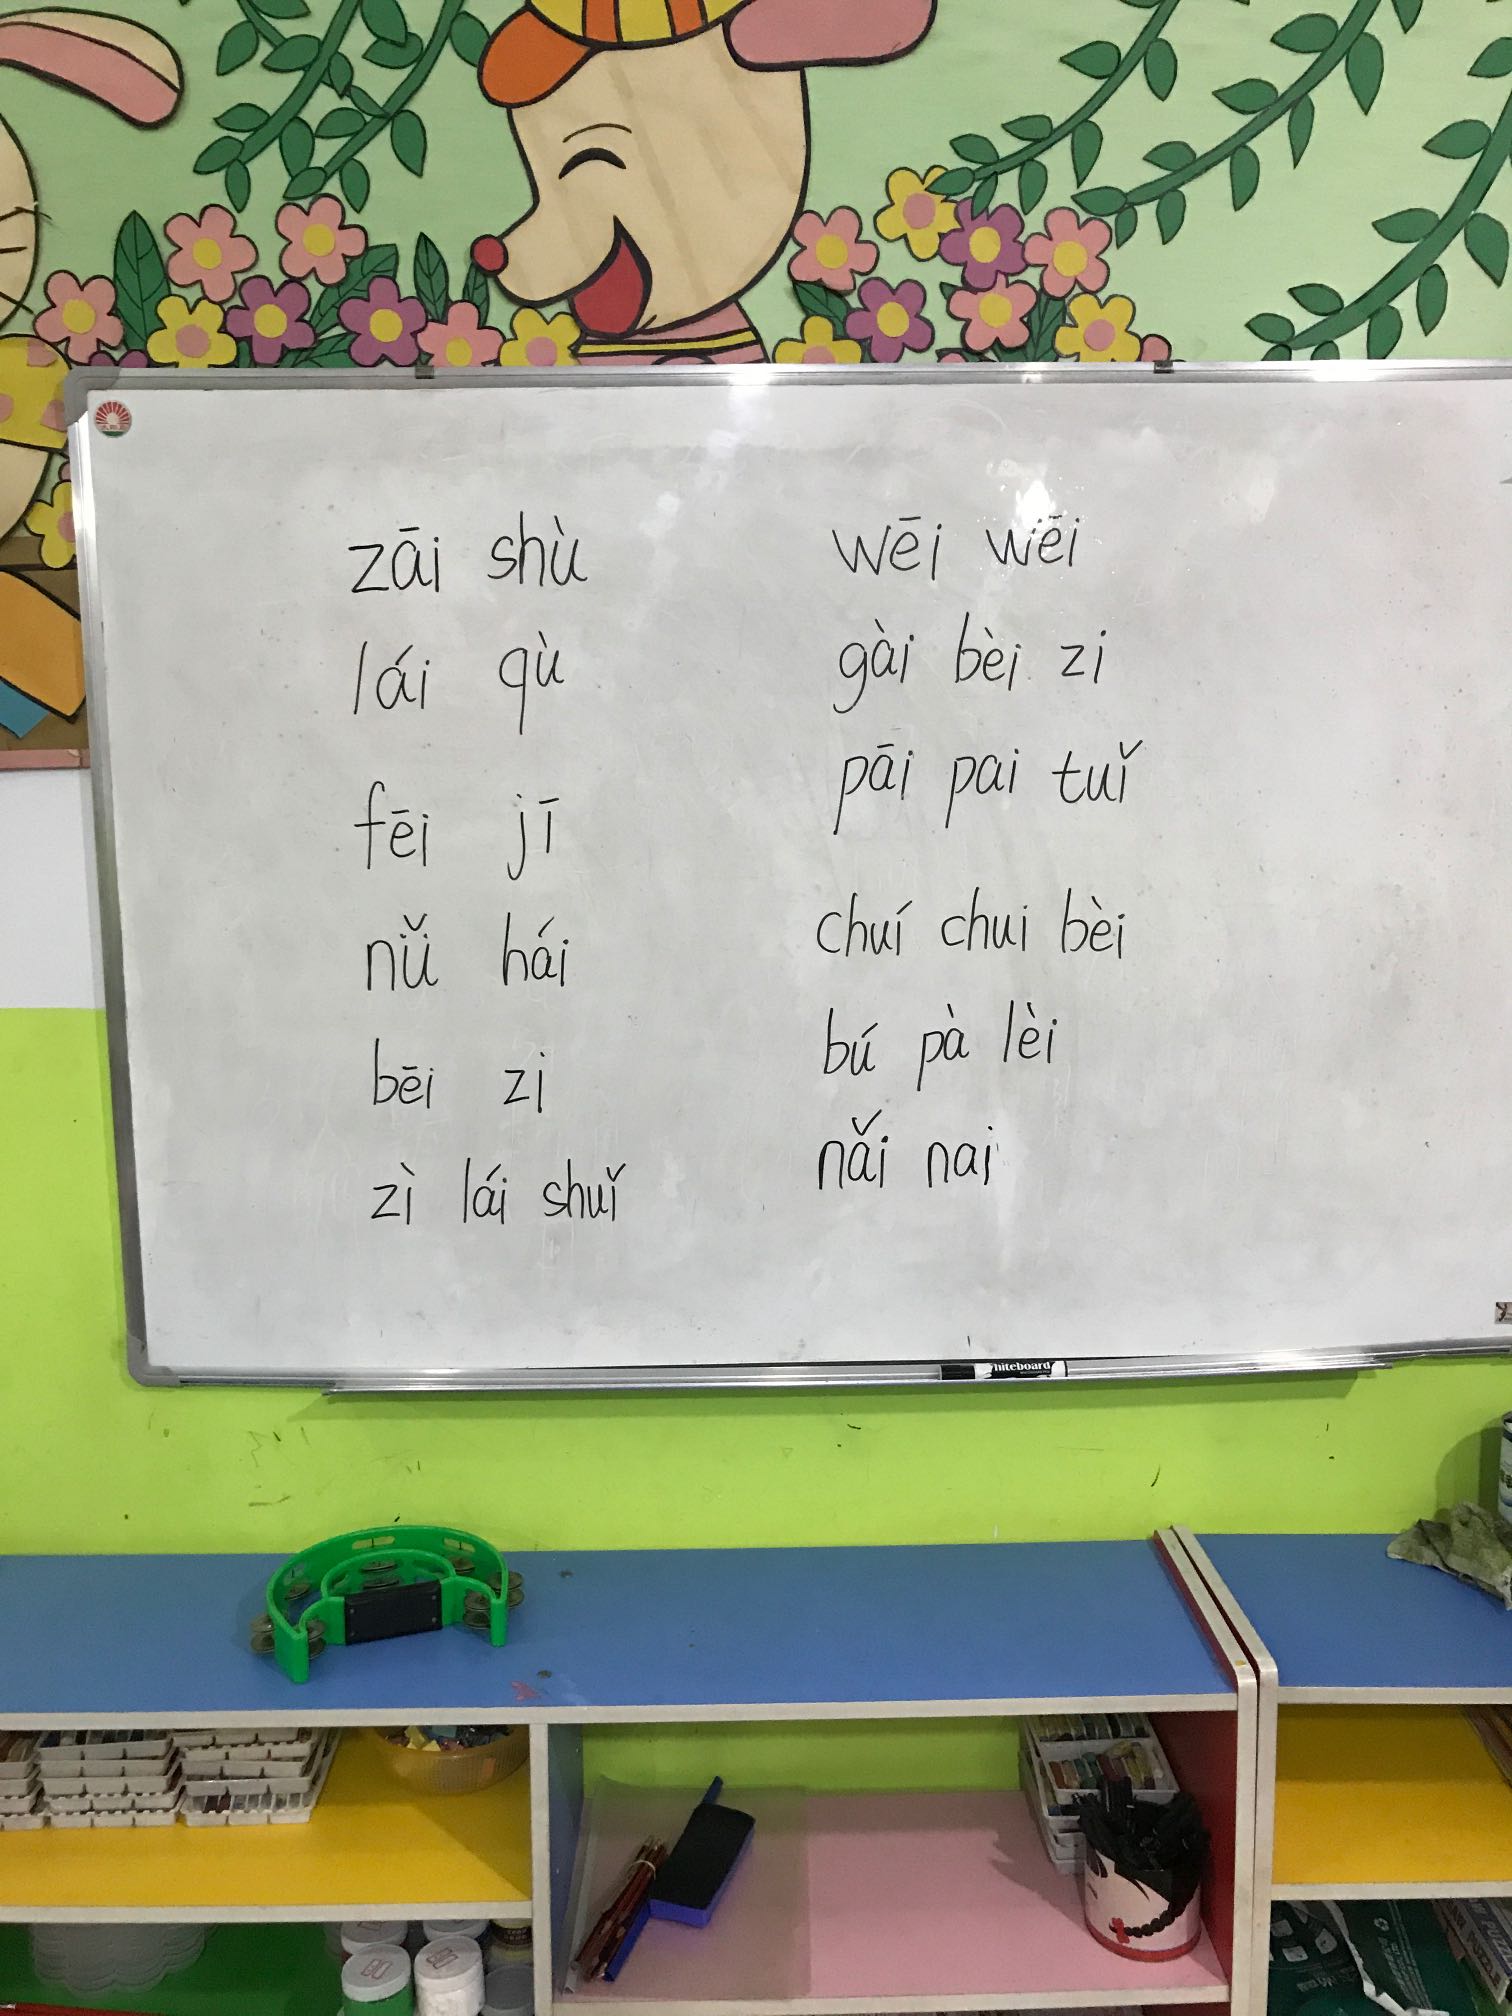 zāi shù
lái qù
fēi jī
nǚ hái
bēi zi
zì lái shuǐ
wēi wēi
gài bèi zi
pāi pai tuǐ
chuí chui bèi
bú pà lèi
nǎi nai
hiteboard